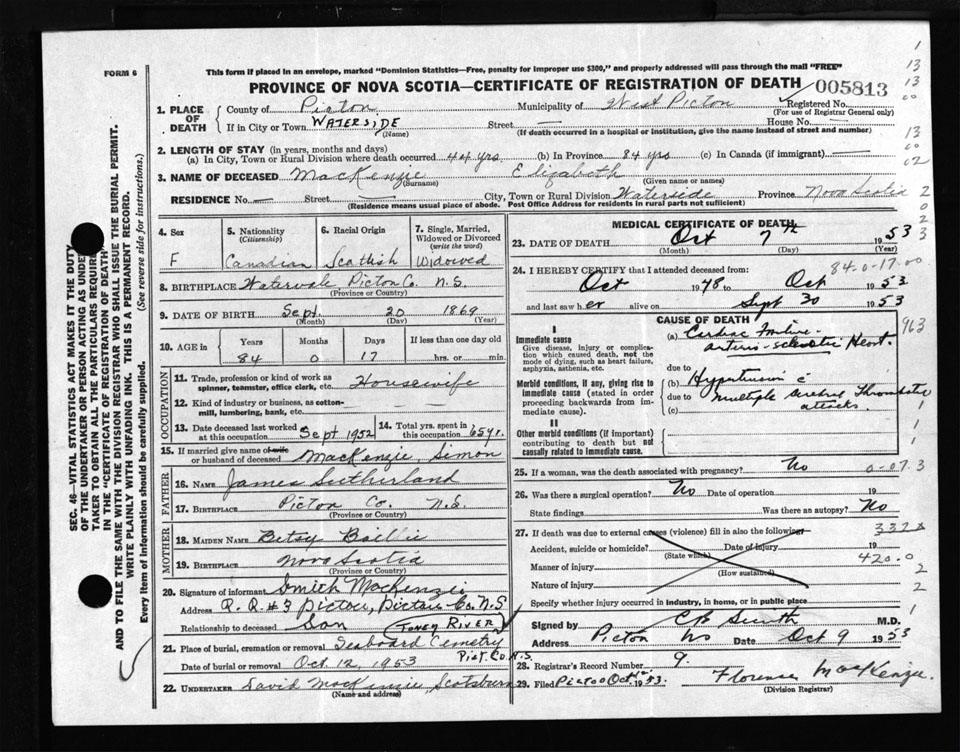 FORM 6
This form if placed in an envelope, marked "Dominion Statistics—Free, penalty for improper use $300," and properly addressed will pass through the mail "FREE"
PROVINCE OF NOVA SCOTIA—CERTIFICATE OF REGISTRATION OF DEATH 005813
1. PLACE OF DEATH
County of Pictou Municipality of West Pictou Registered No.
(For use of Registrar General only)
If in City or Town WATERSIDE Street — House No. —
(Name) (If death occurred in a hospital or institution, give the name instead of street and number)
2. LENGTH OF STAY (in years, months and days)
(a) In City, Town or Rural Division where death occurred 44 yrs. (b) In Province 84 yrs (c) In Canada (if immigrant) —
3. NAME OF DECEASED MacKenzie Elizabeth
(Surname) (Given name or names)
RESIDENCE No. — Street — City, Town or Rural Division Waterside Province Nova Scotia
(Residence means usual place of abode. Post Office Address for residents in rural parts not sufficient)
4. Sex F
5. Nationality (Citizenship) Canadian
6. Racial Origin Scottish
7. Single, Married, Widowed or Divorced (write the word) Widowed
8. BIRTHPLACE Watervale Pictou Co. N.S.
(Province or Country)
9. DATE OF BIRTH Sept. 20 1869
(Month) (Day) (Year)
10. AGE in Years Months Days If less than one day old
84 0 17 hrs. or min.
OCCUPATION
11. Trade, profession or kind of work as spinner, teamster, office clerk, etc. Housewife
12. Kind of industry or business, as cotton-mill, lumbering, bank, etc. —
13. Date deceased last worked at this occupation Sept 1952
14. Total yrs. spent in this occupation 65 yr.
15. If married give name of wife or husband of deceased MacKenzie, Simon
FATHER
16. NAME James Sutherland
17. BIRTHPLACE Pictou Co. N.S.
(Province or Country)
MOTHER
18. MAIDEN NAME Betsy Baillie
19. BIRTHPLACE Nova Scotia
(Province or Country)
20. Signature of informant Smith MacKenzie
Address R. R. #3 Pictou, Pictou Co. N.S.
Relationship to deceased Son (TONEY RIVER)
21. Place of burial, cremation or removal Seaboard Cemetry
Pict. Co. N.S.
Date of burial or removal Oct. 12, 1953
22. UNDERTAKER David MacKenzie, Scotsburn
(Name and address)
MEDICAL CERTIFICATE OF DEATH
23. DATE OF DEATH Oct 7th 1953
(Month) (Day) (Year)
84-0-17.00
24. I HEREBY CERTIFY that I attended deceased from:
Oct 1948 to Oct 1953
and last saw her alive on Sept 30 1953
CAUSE OF DEATH
I
Immediate cause
Give disease, injury or complication which caused death, not the mode of dying, such as heart failure, asphyxia, asthenia, etc.
(a) Cardiac Failure - arterio-sclerotic Heart.
due to
Morbid conditions, if any, giving rise to immediate cause (stated in order proceeding backwards from immediate cause).
(b) Hypertension c̄
due to multiple cerebral Thrombotic
(c) attacks.
II
Other morbid conditions (if important) contributing to death but not causally related to immediate cause.
25. If a woman, was the death associated with pregnancy? No
26. Was there a surgical operation? No Date of operation 19
State findings Was there an autopsy? No
27. If death was due to external causes (violence) fill in also the following:
Accident, suicide or homicide? Date of injury 19
(State which)
Manner of injury
(How sustained)
Nature of injury
Specify whether injury occurred in industry, in home, or in public place
Signed by M.D.
Address Pictou NS Date Oct 9 1953
28. Registrar's Record Number 9.
29. Filed PICTOU Oct 1953. Florence MacKenzie
(Division Registrar)
963
0-07.3
332x
420.0
SEC. 46—VITAL STATISTICS ACT MAKES IT THE DUTY
OF THE UNDERTAKER OR PERSON ACTING AS UNDER
TAKER TO OBTAIN ALL THE PARTICULARS REQUIRED
IN THE "CERTIFICATE OF REGISTRATION OF DEATH"
AND TO FILE THE SAME WITH THE DIVISION REGISTRAR WHO SHALL ISSUE THE BURIAL PERMIT.
WRITE PLAINLY WITH UNFADING INK. THIS IS A PERMANENT RECORD.
Every item of information should be carefully supplied. (See reverse side for instructions.)